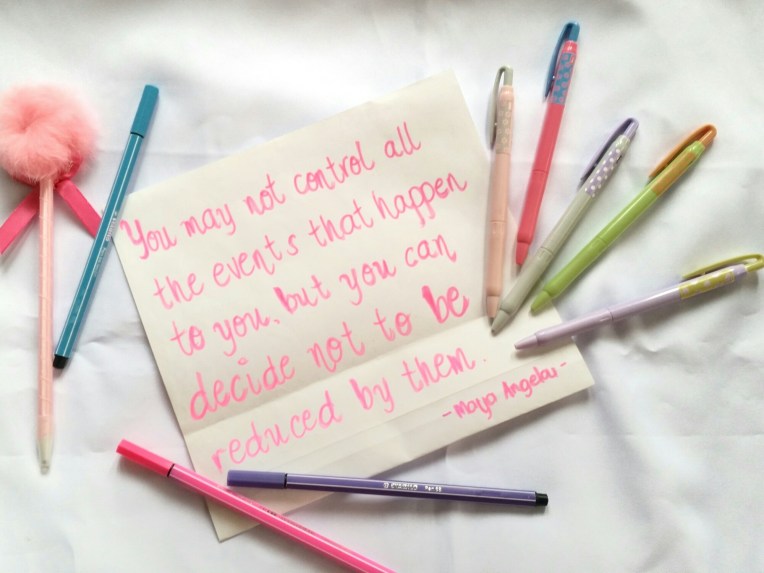 You may not control all
the events that happen
to you, but you can
decide not to be
reduced by them.
- Maya Angelou -